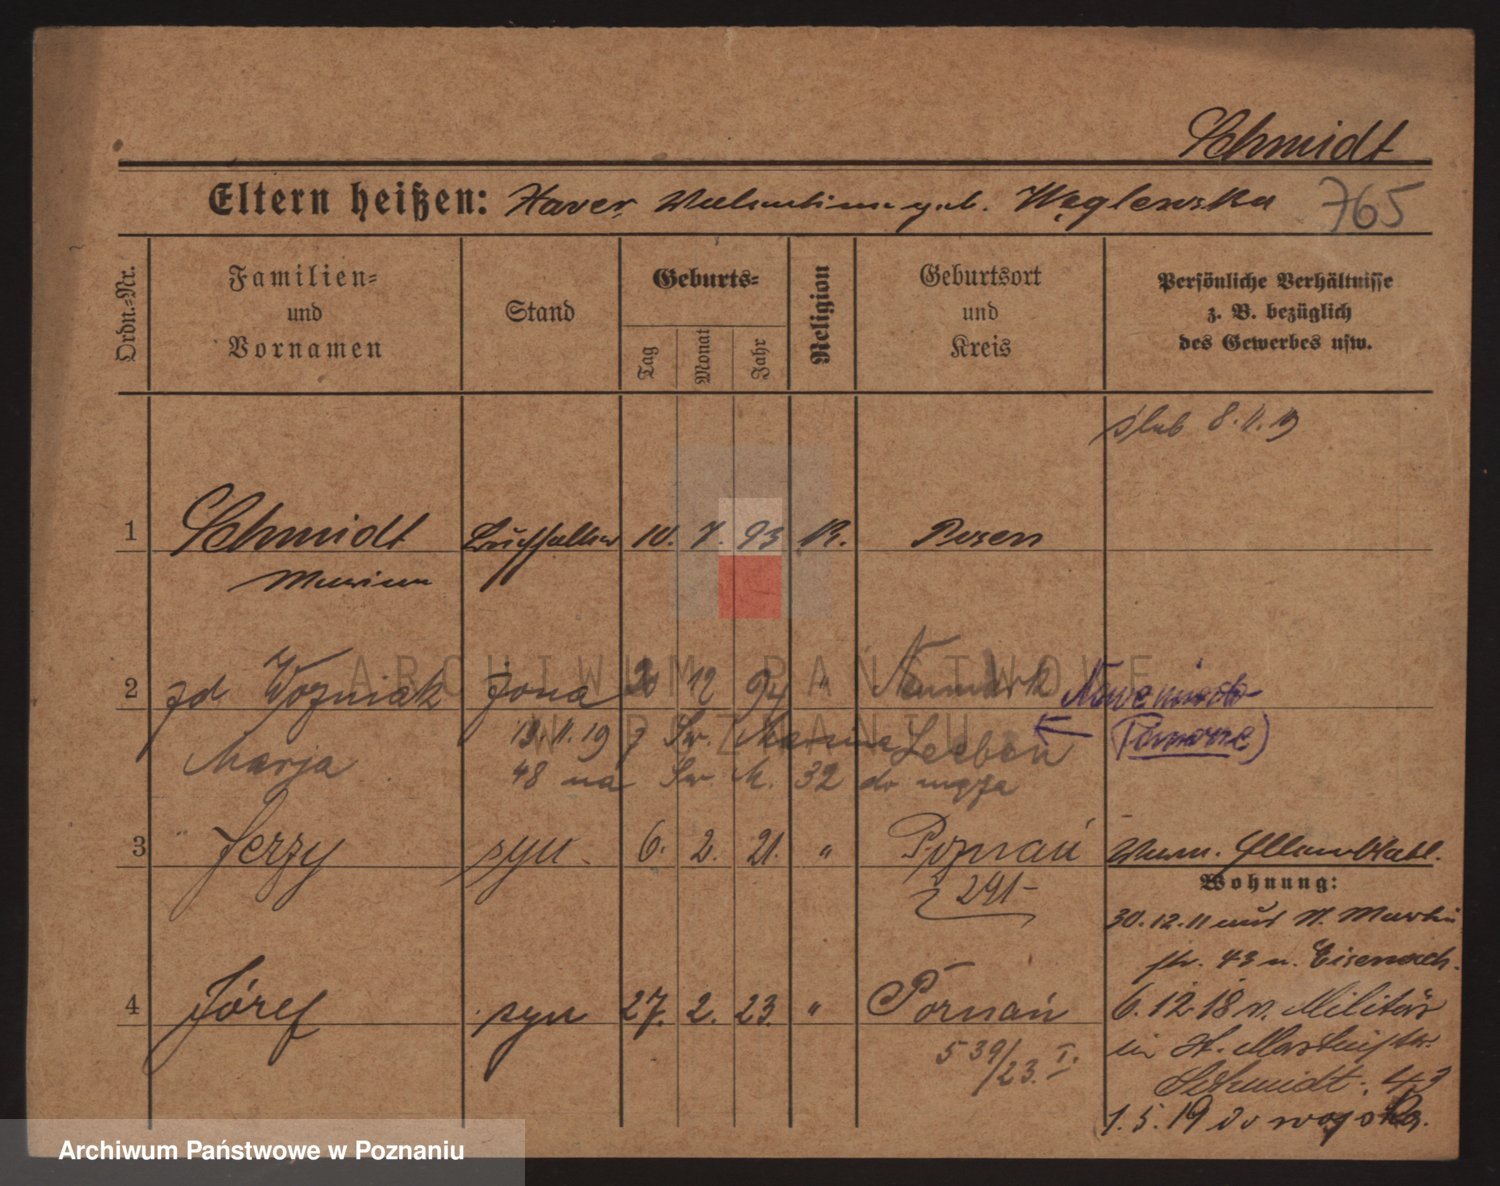 Schmidt
Eltern heißen: Xaver, Valentina geb. Węglewska 765
Ordn.-Nr.
Familien-
und
Vornamen
Stand
Geburts-
Tag
Monat
Jahr
Religion
Geburtsort
und
Kreis
Persönliche Verhältnisse
z. B. bezüglich
des Gewerbes usw.
ślub 8.11.19
1 Schmidt Buchhalter 10. 7. 93 R. Posen
Marian
ARCHIWUM PAŃSTWOWE
W POZNANIU
2 zd Woźniak żona 20 12 94 " Neumark Nowemiasto
Marja 13.11.19 z Św. Leebon (Pomorze)
48 na Św. M. 32 do męża
3 Jerzy syn 6. 2. 21. " Poznań
291-
Wohnung:
30.12.11 aus St. Martin
str. 43 n. Eisenach.
4 Józef syn 27. 2. 23. " Poznań 6.12.18 v. Militär
539/23. I. in St. Martinstr.
Schmidt. 43
1.5.19 do wojska.
Archiwum Państwowe w Poznaniu